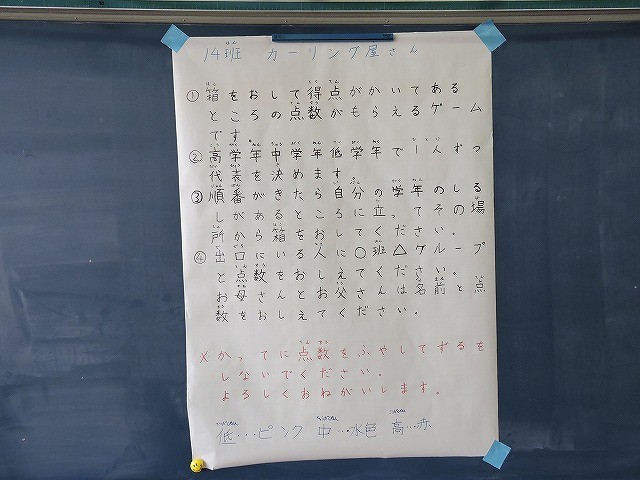 14班 カーリング屋さん
①箱をおして得点がかいてある
ところの点数がもらえるゲーム
です
②高学年中学年低学年で一人ずつ
代表決めます
③順番がきたら自分の学年のしる
しがあるところに立ってその場
所から箱をおしてください。
④出口にいる人に○班△グループ
と点数をおしえてください。
お母さんお父さんは名前と点
数をおしえてください.
×かってに点数をふやしてずるを
しないでください。
よろしくおねがいします。
低…ピンク 中…水色 高…赤